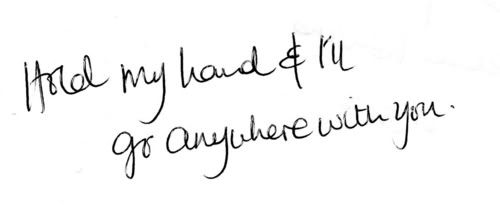 Hold my hand & I'll
go anywhere with you.